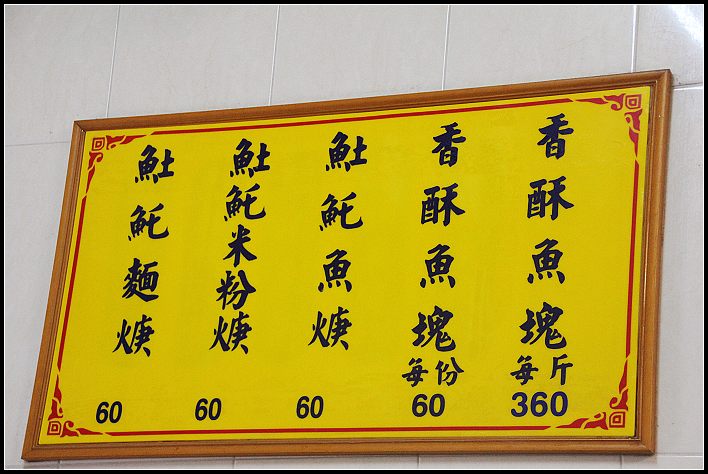 香酥魚塊每斤 360
香酥魚塊每份 60
𩵚魠魚焿 60
𩵚魠米粉焿 60
𩵚魠麵焿 60